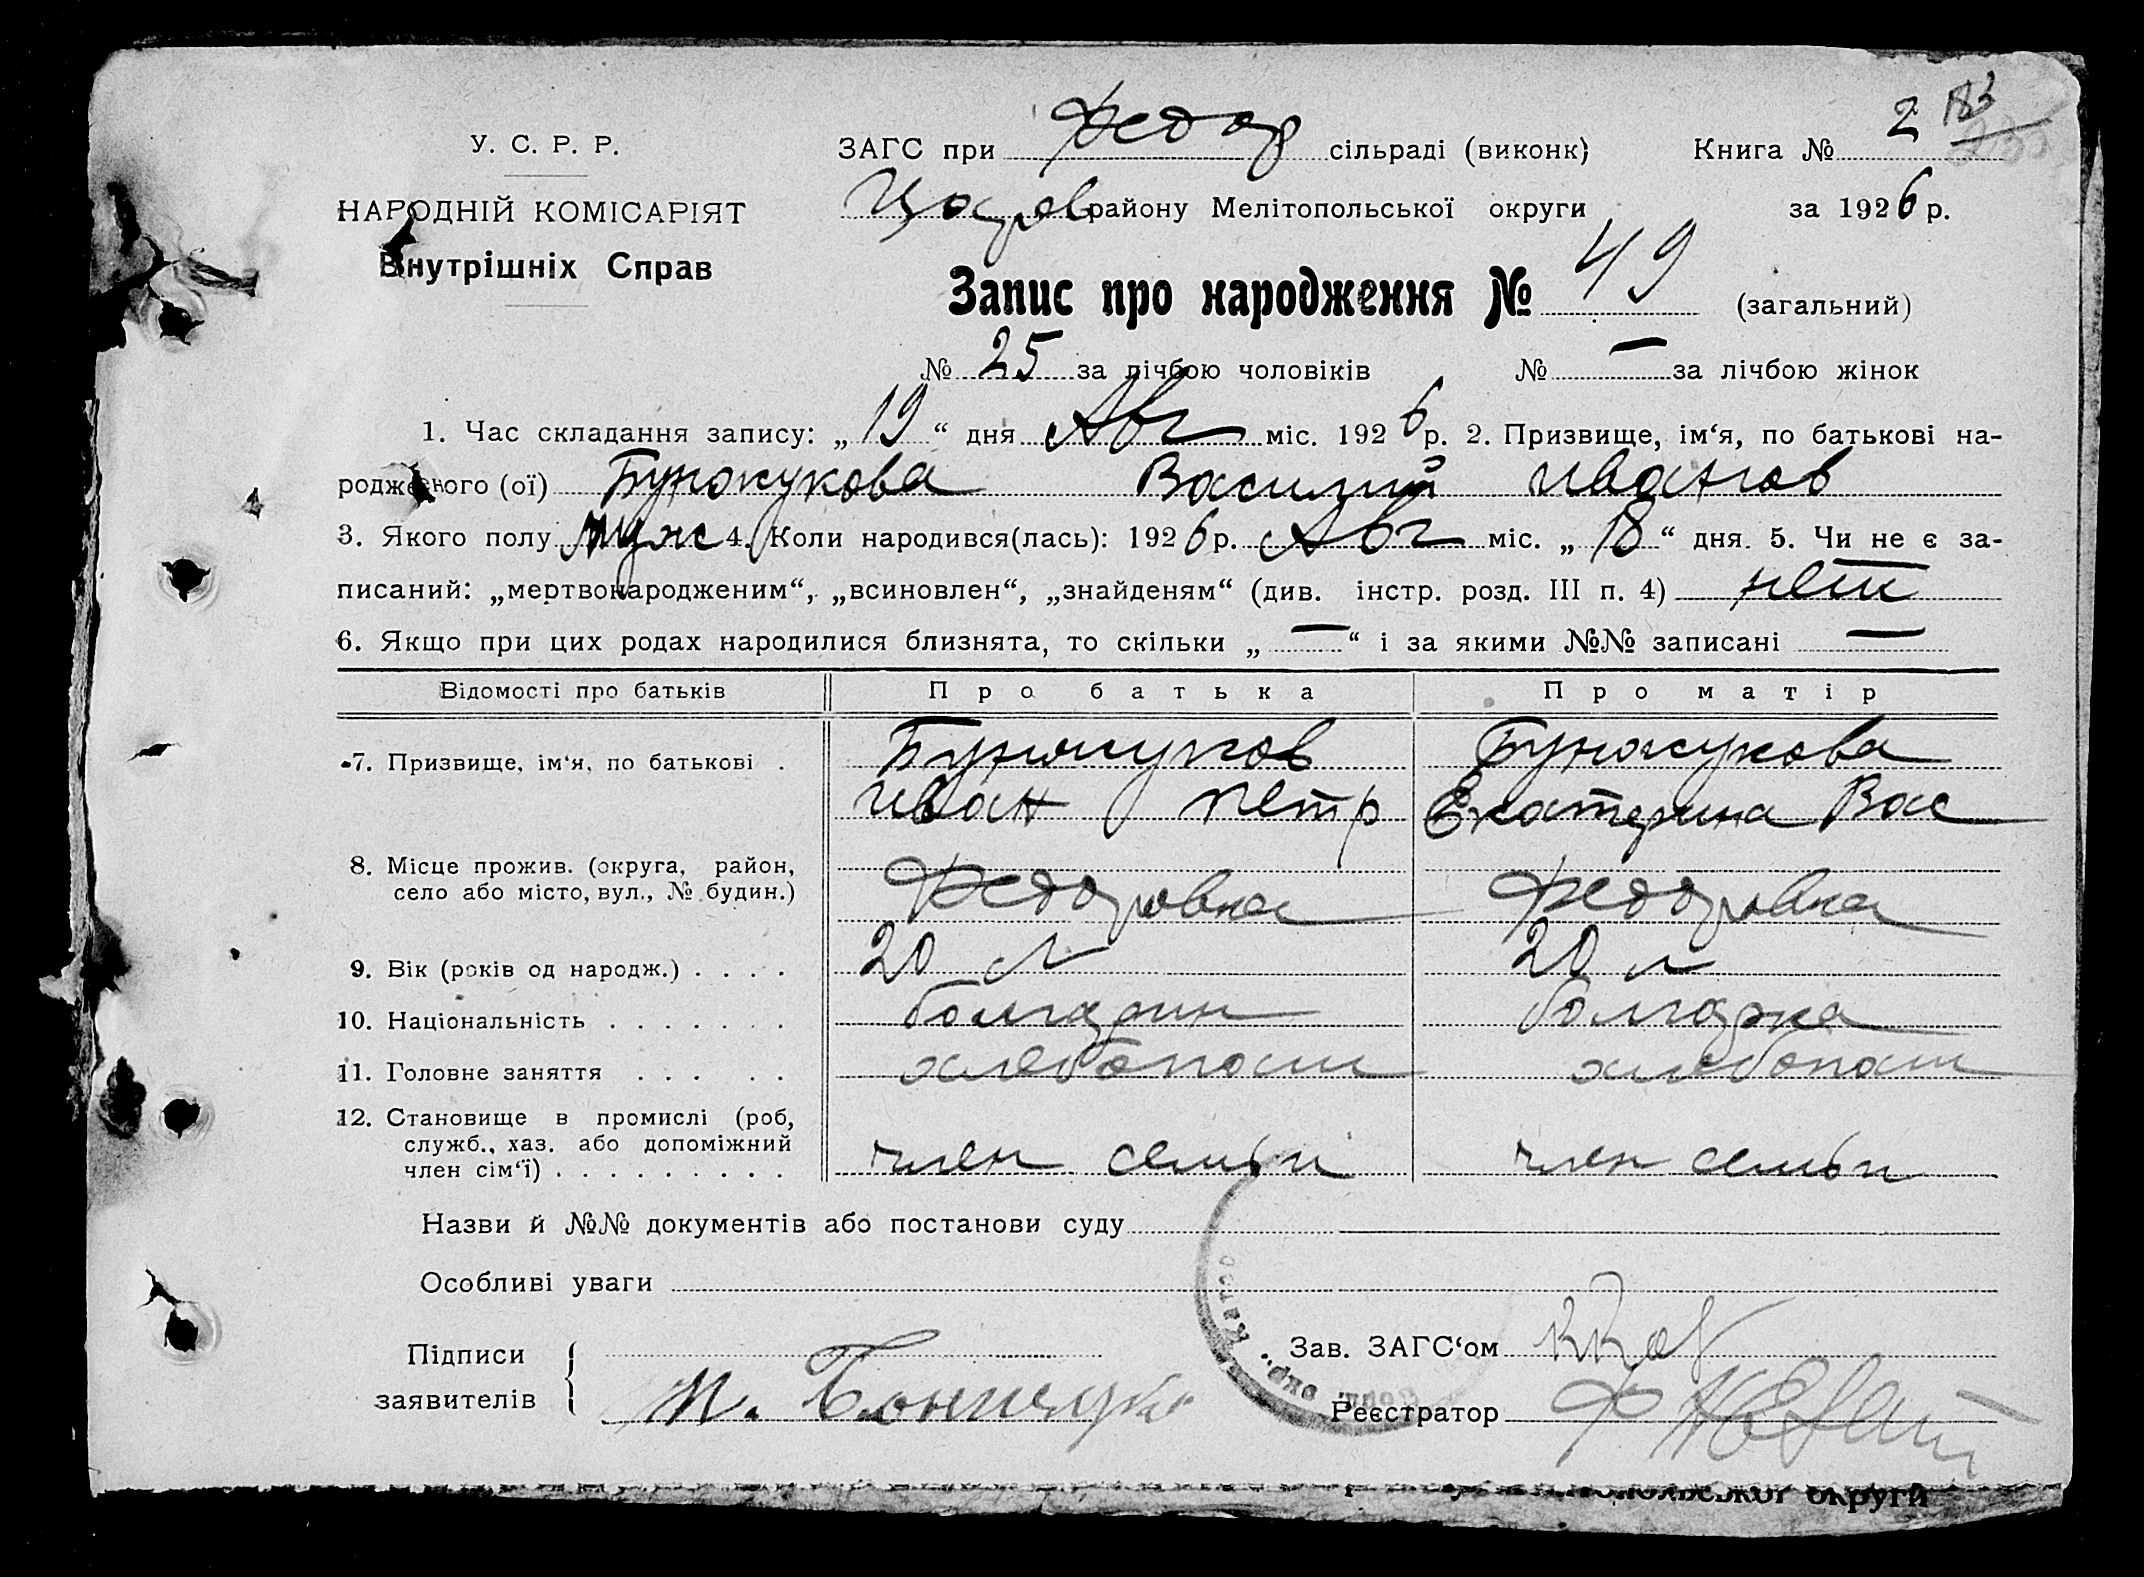 2 183
У. С. Р. Р. ЗАГС при Федор сільраді (виконк) Книга №
НАРОДНІЙ КОМІСАРІЯТ Цоцров району Мелітопольської округи за 1926 р.
Внутрішніх Справ
Запис про народження № 49 (загальний)
№ 25 за лічбою чоловіків № — за лічбою жінок
1. Час складання запису: „19“ дня Авг міс. 1926 р. 2. Призвище, ім‘я, по батькові на-
родженого (ої) Бунжукова Василий Иванов
3. Якого полу муж 4. Коли народився(лась): 1926 р. Авг міс. „18“ дня. 5. Чи не є за-
писаний: „мертвонародженим“, „всиновлен“, „знайденям“ (див. інстр. розд. III п. 4) нет
6. Якщо при цих родах народилися близнята, то скільки „—“ і за якими №№ записані —
Відомості про батьків Про батька Про матір
7. Призвище, ім‘я, по батькові . Бунжуков Бунжукова
Иван Петр Екатерина Вас
8. Місце прожив. (округа, район,
село або місто, вул., № будин.) Федоровка Федоровка
9. Вік (років од народж.) . . . . 20 л 20 л
10. Національність . . . . . . . болгарин болгарка
11. Головне заняття . . . . . хлебопаш хлебопаш
12. Становище в промислі (роб,
служб., хаз. або допоміжний
член сім‘ї) . . . . . . . . . член семьи член семьи
Назви й №№ документів або постанови суду
Особливі уваги
Підписи Зав. ЗАГС‘ом
заявителів Реєстратор
округи